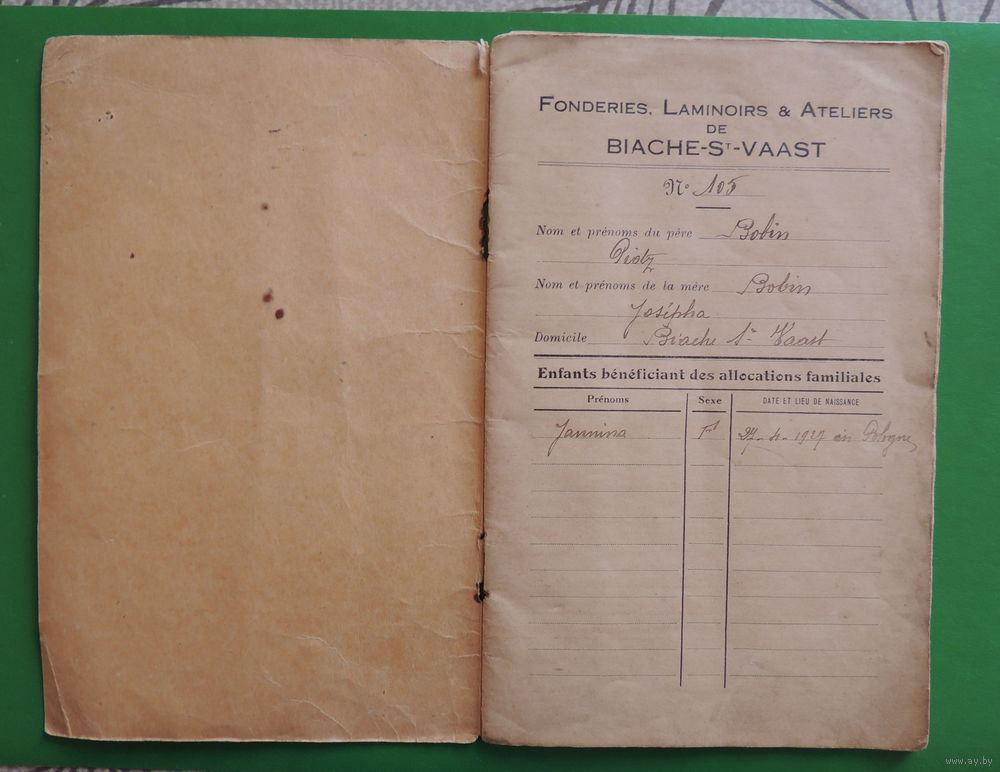 FONDERIES, LAMINOIRS & ATELIERS
DE
BIACHE-ST-VAAST
No 105
Nom et prénoms du père Bobin
Piotz
Nom et prénoms de la mère Bobin
Josépha
Domicile Biache St Vaast
Enfants bénéficiant des allocations familiales
Prénoms Sexe DATE ET LIEU DE NAISSANCE
Jannina 27-4-1927 en Pologne
www.ay.by